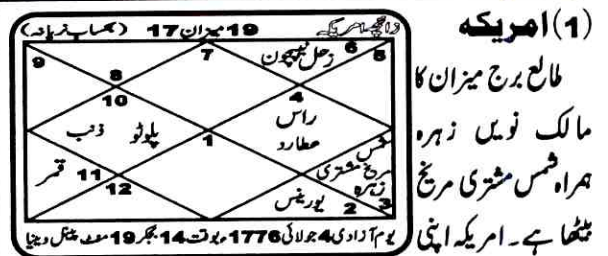 (1) امریکہ
طالع برج میزان کا
مالک نویں زہرہ
ہمراہ شمس مشتری مریخ
بیٹھا ہے۔ امریکہ اپنی
زائچہ امریکہ 19 میزان 17 (بحساب نریانہ)
7
6
5
زحل نیپچون
9
8
10
4
راس
عطارد
ذنب
پلوٹو
1
شمس
مریخ مشتری
زہرہ
قمر
11
12
یورینس
2
3
یوم آزادی 4 جولائی 1776ء بوقت 14 بجکر 19 منٹ پینسل وینیا